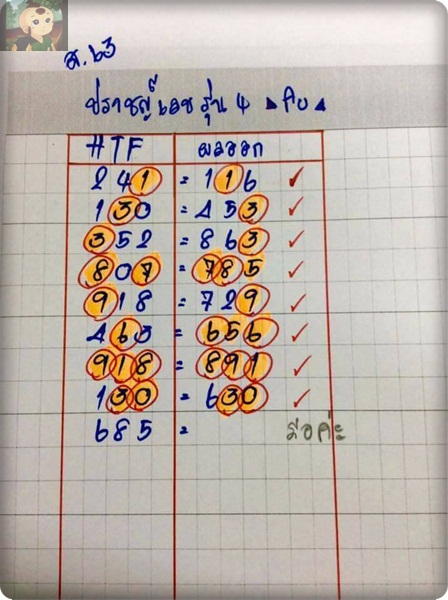 ส.63
ปราชญ์เลข รุ่น 4 ▲ กบ ▲
HTF ผลออก
241 = 116 ✓
130 = 453 ✓
352 = 863 ✓
807 = 785 ✓
918 = 729 ✓
463 = 656 ✓
918 = 891 ✓
130 = 630 ✓
685 = รอค่ะ